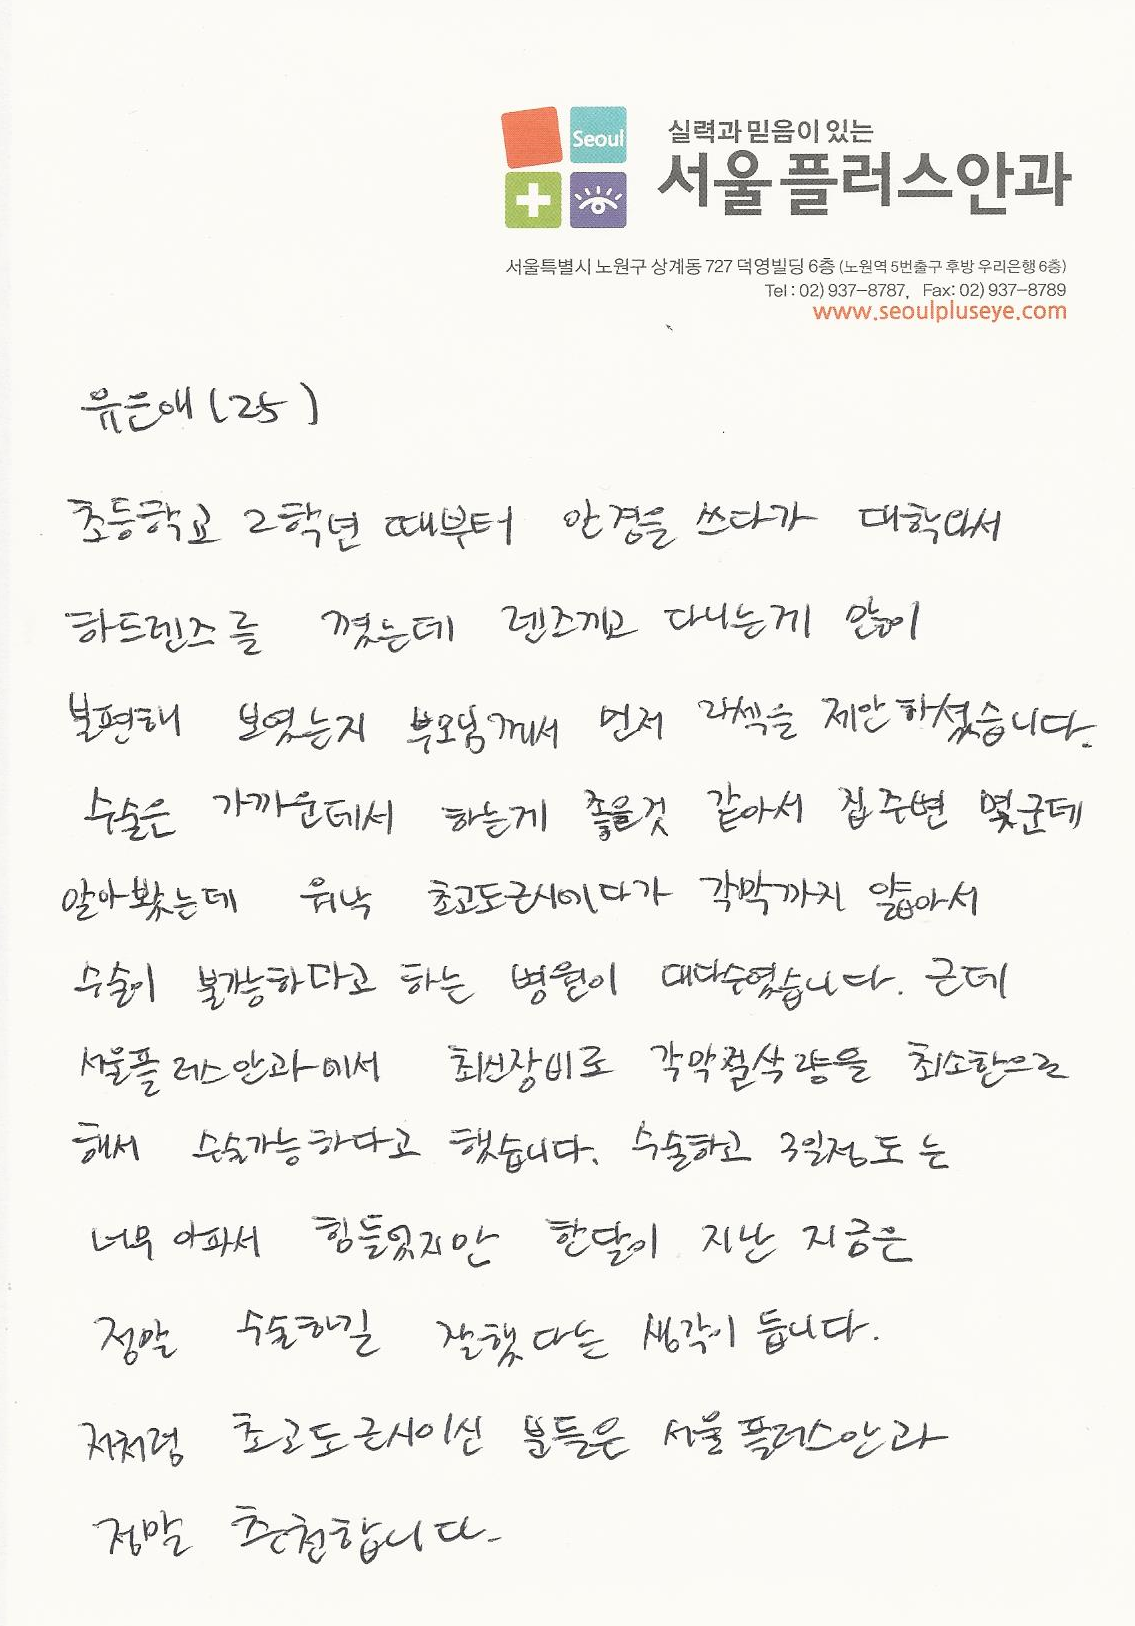 Seoul
실력과 믿음이 있는
서울플러스안과
서울특별시 노원구 상계동 727 덕영빌딩 6층 (노원역 5번출구 후방 우리은행 6층)
Tel : 02) 937-8787, Fax: 02) 937-8789
www.seoulpluseye.com
유은애 (25)
초등학교 2학년 때부터 안경을 쓰다가 대학와서
하드렌즈를 꼈는데 렌즈끼고 다니는게 많이
불편해 보였는지 부모님께서 먼저 라섹을 제안하셨습니다.
수술은 가까운데서 하는게 좋을것 같아서 집주변 몇군데
알아봤는데 워낙 초고도근시에다가 각막까지 얇아서
수술이 불가능하다고 하는 병원이 대다수였습니다. 근데
서울플러스안과에서 최신장비로 각막절삭량을 최소한으로
해서 수술가능하다고 했습니다. 수술하고 3일정도는
너무 아파서 힘들었지만 한달이 지난 지금은
정말 수술하길 잘했다는 생각이 듭니다.
저처럼 초고도근시이신 분들은 서울플러스안과
정말 추천합니다.